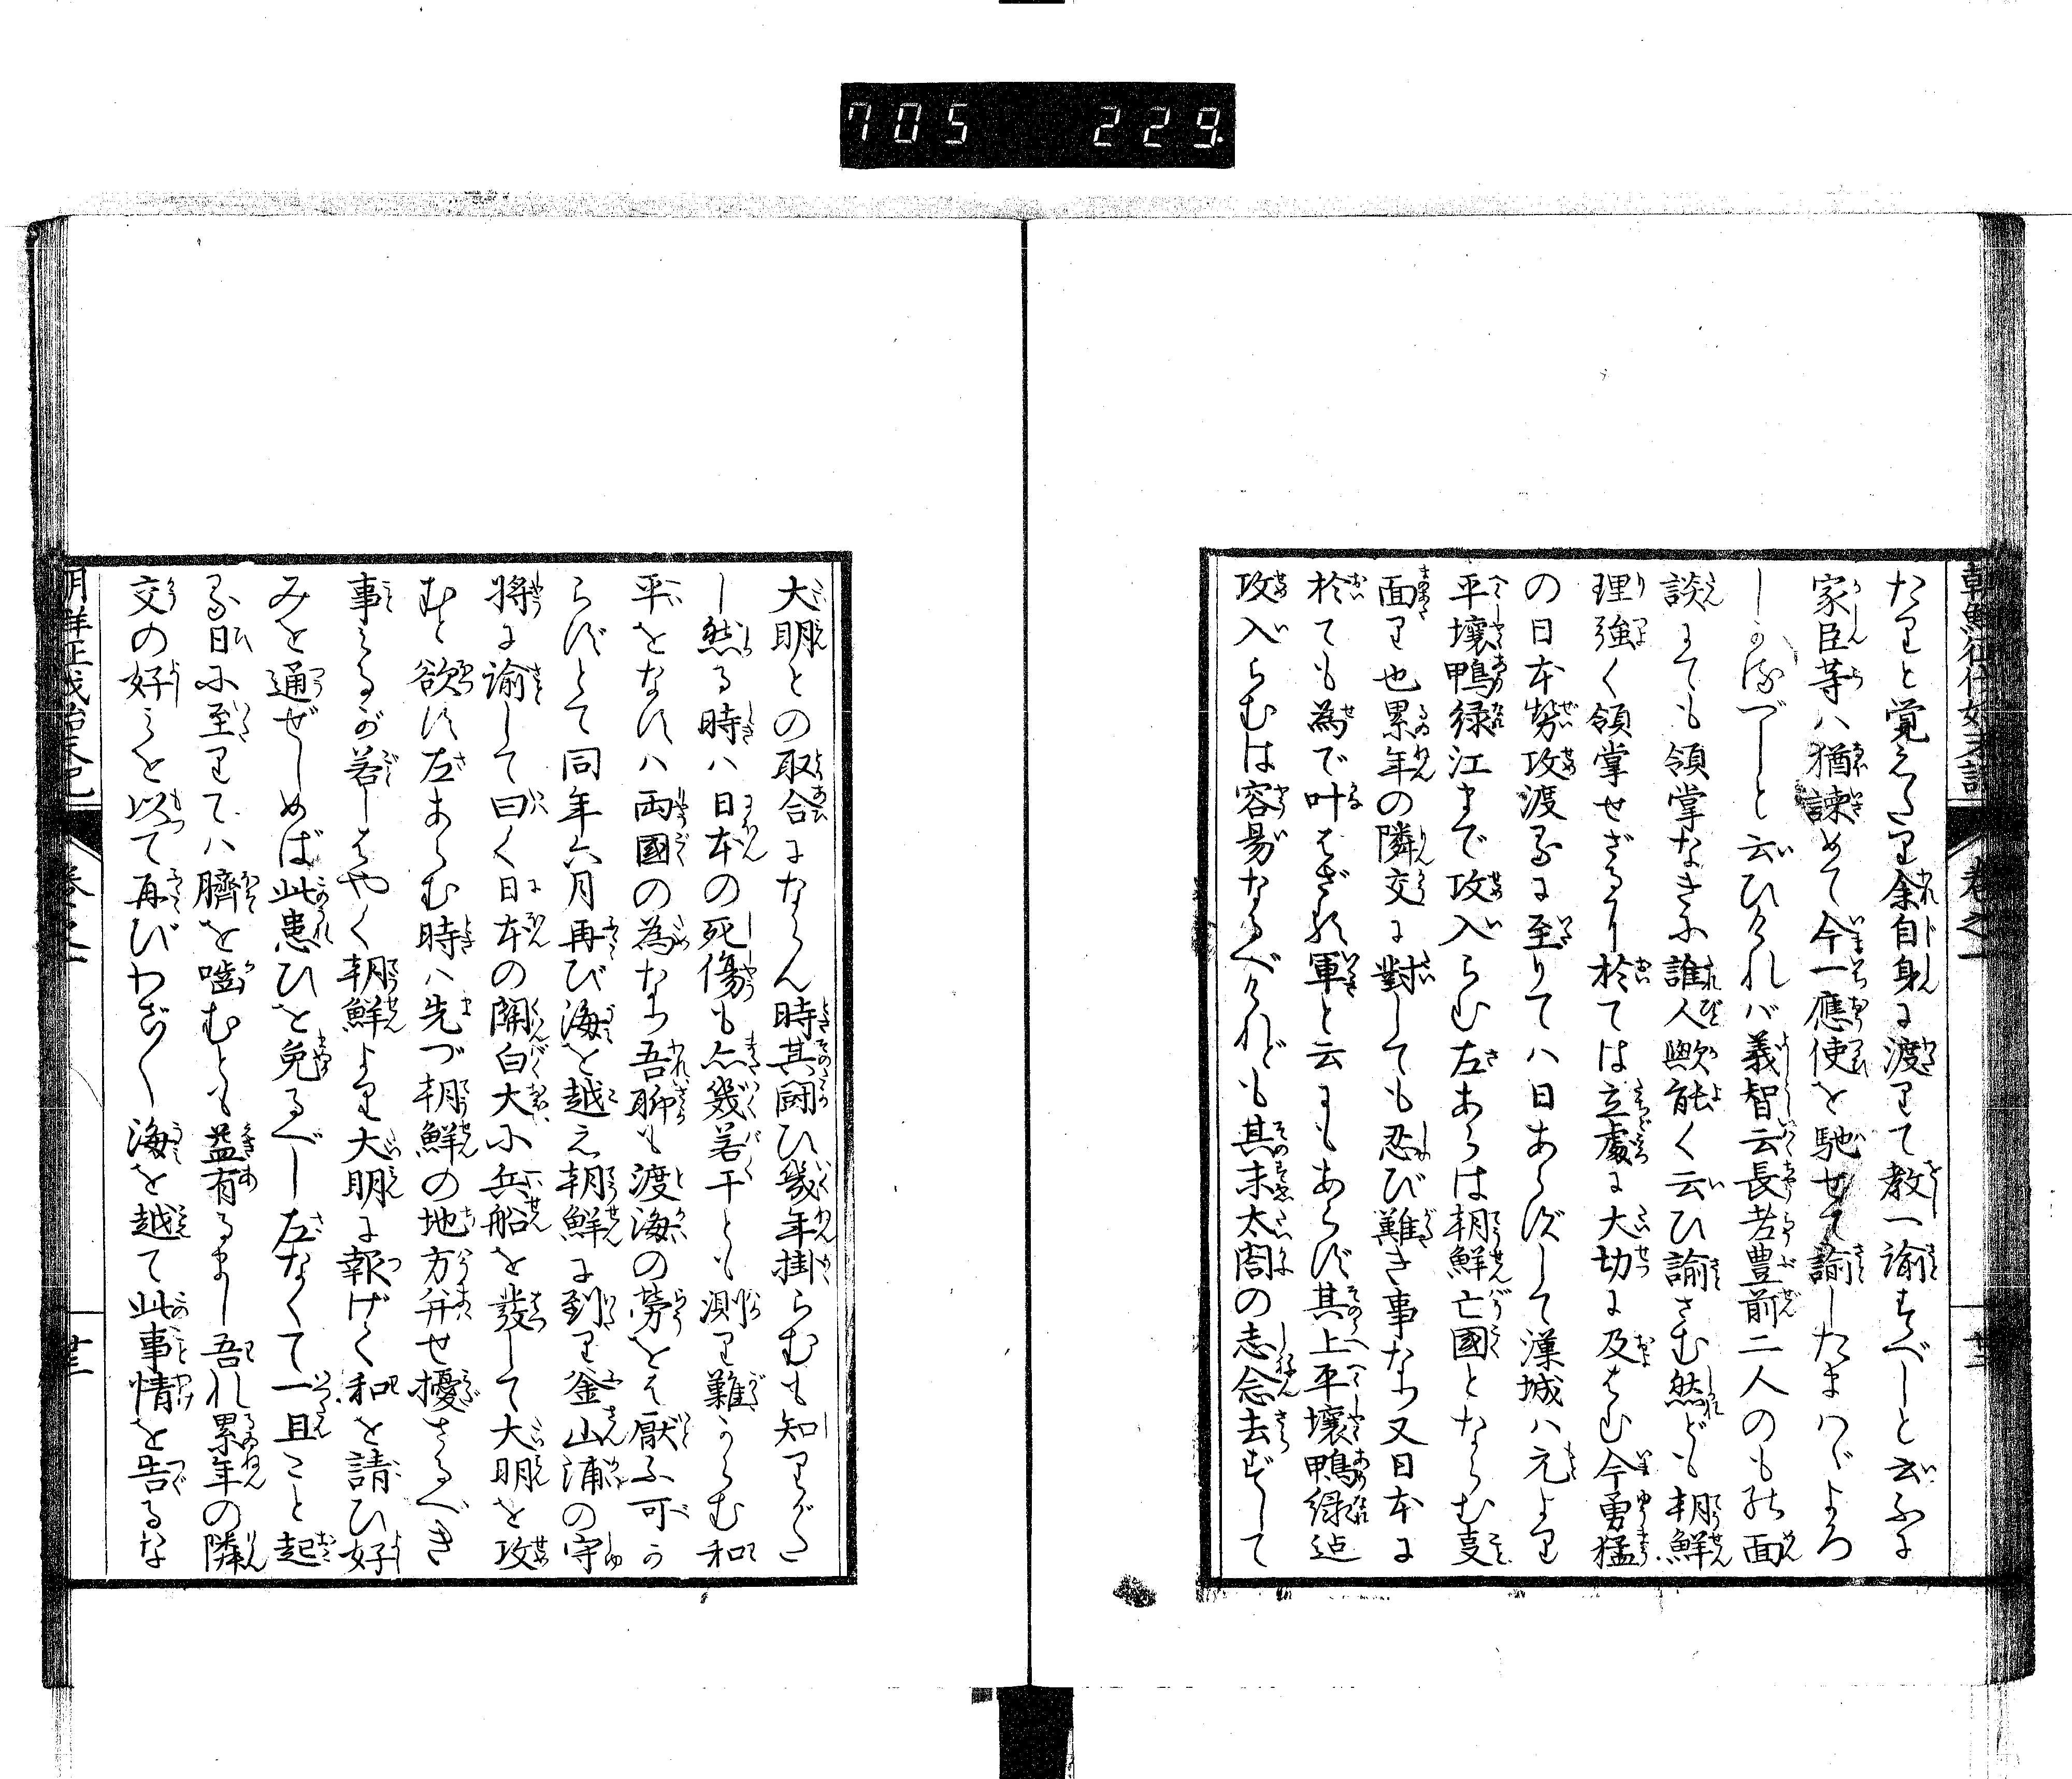 705 229.
たりと覚えたり余自身に渡りて教へ諭すべしと云ふに
家臣等ハ猶諌めて今一應使を馳せて諭したまハヾよろ
しかるべしと云ひけれバ義智云長老豊前二人のもの面
談にても領掌なきに誰人歟能く云ひ諭さむ然ども朝鮮
理強く領掌せざるに於ては立處に大切に及はむ今勇猛
の日本勢攻渡るに至りてハ日あらずして漢城ハ元より
平壌鴨緑江まで攻入らむ左あらは朝鮮亡國とならむ事
面り也累年の隣交に對しても忍び難き事なり又日本に
於ても為で叶はざる軍と云にもあらず其上平壌鴨緑迠
攻入らむは容易なるべけれども其末太閤の志念去ずして
大明との取合にならん時其闘ひ幾年掛らむも知りがた
し然る時ハ日本の死傷も亦幾若干とも測り難からむ和
平をなすハ両國の為なり吾聊も渡海の労をは厭ふ可か
らずとて同年六月再び海を越え朝鮮に到り釜山浦の守
将に諭して曰く日本の關白大小兵船を發して大明を攻
むと欲す左あらむ時ハ先づ朝鮮の地方弁せ擾さるべき
事なるが若しはやく朝鮮より大明に報げく和を請ひ好
みを通ぜしめば此患ひを免るべし左なくて一旦こと起
る日に至りてハ臍を噛むとも益有るまし吾れ累年の隣
交の好みを以て再びわざ〳〵海を越て此事情を告るな
巻之一